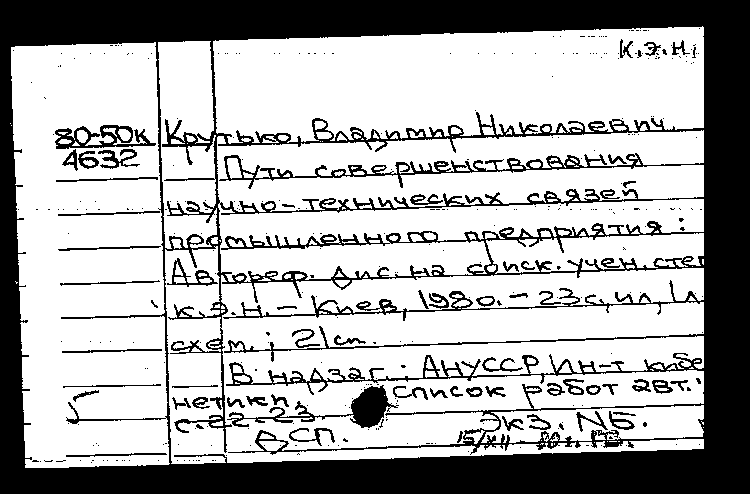 к.э.н.
80-50к Крутько, Владимир Николаевич.
4632 Пути совершенствования
научно-технических связей
промышленного предприятия:
Автореф. дис. на соиск. учен. степ
к.э.н. - Киев, 1980. - 23с, ил, 1л.
схем.; 21 cm.
В надзаг.: АНУССР, Ин-т кибе
нетики. Список работ авт.:
5 с. 22-23 Экз. №Б.
ДСП.